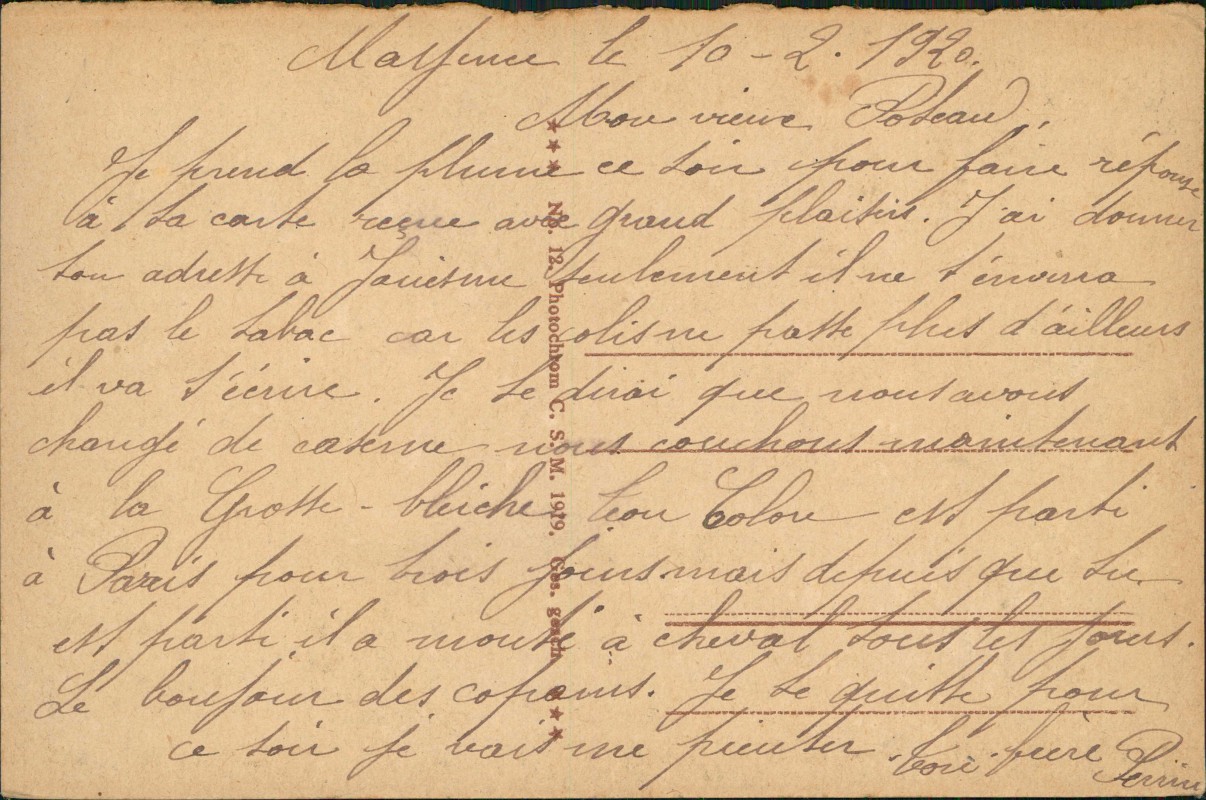 Mayence le 10-2-1920.
Mon vieux Poteau,
Je prend la plume ce soir pour faire réponse
à ta carte reçue avec grand plaisirs. J'ai donner
ton adresse à seulement il ne t'énverra
pas le tabac car les colis ne passe plus d'ailleurs
il va t'écrire. Je te dirai que nous avons
changé de caserne nous couchons maintenant
à la Grosse-bleiche ton Colon est parti
à Paris pour trois jours mais depuis que tu
est parti il a monté à cheval tous les jours.
Le bonjour des copains. Je te quitte pour
ce soir je vais me pieuter. Ton frère
No. 12. Photochrom C. S. M. 1919. Ges. gesch.